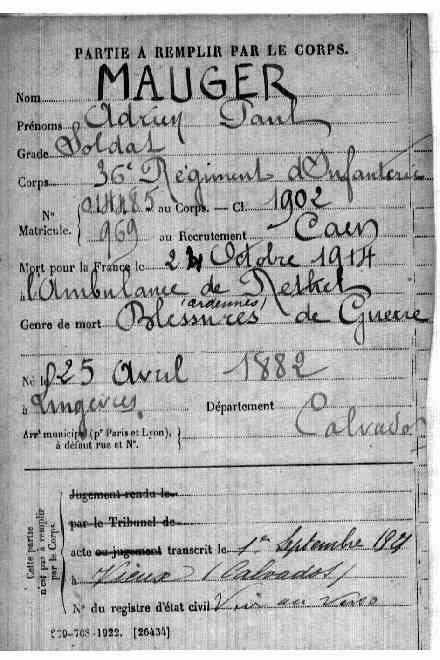 PARTIE À REMPLIR PAR LE CORPS.
Nom MAUGER
Prénoms Adrien Paul
Grade Soldat
Corps 36e Régiment d'Infanterie
N° 014485 au Corps. — Cl. 1902
Matricule. 969 au Recrutement Caen
Mort pour la France le 24 Octobre 1914
à l'Ambulance de Rethel
(Ardennes)
Genre de mort Blessures de Guerre
Né le 25 Avril 1882
à Lingèvres Département Calvados
Arrt municipal (pr Paris et Lyon),
à défaut rue et N°.
Cette partie
n'est pas à remplir
par le Corps.
Jugement rendu le
par le Tribunal de
acte ou jugement transcrit le 1er Septembre 1921
à Vieux (Calvados)
N° du registre d'état civil Voir au verso
-708-1922. [26434]